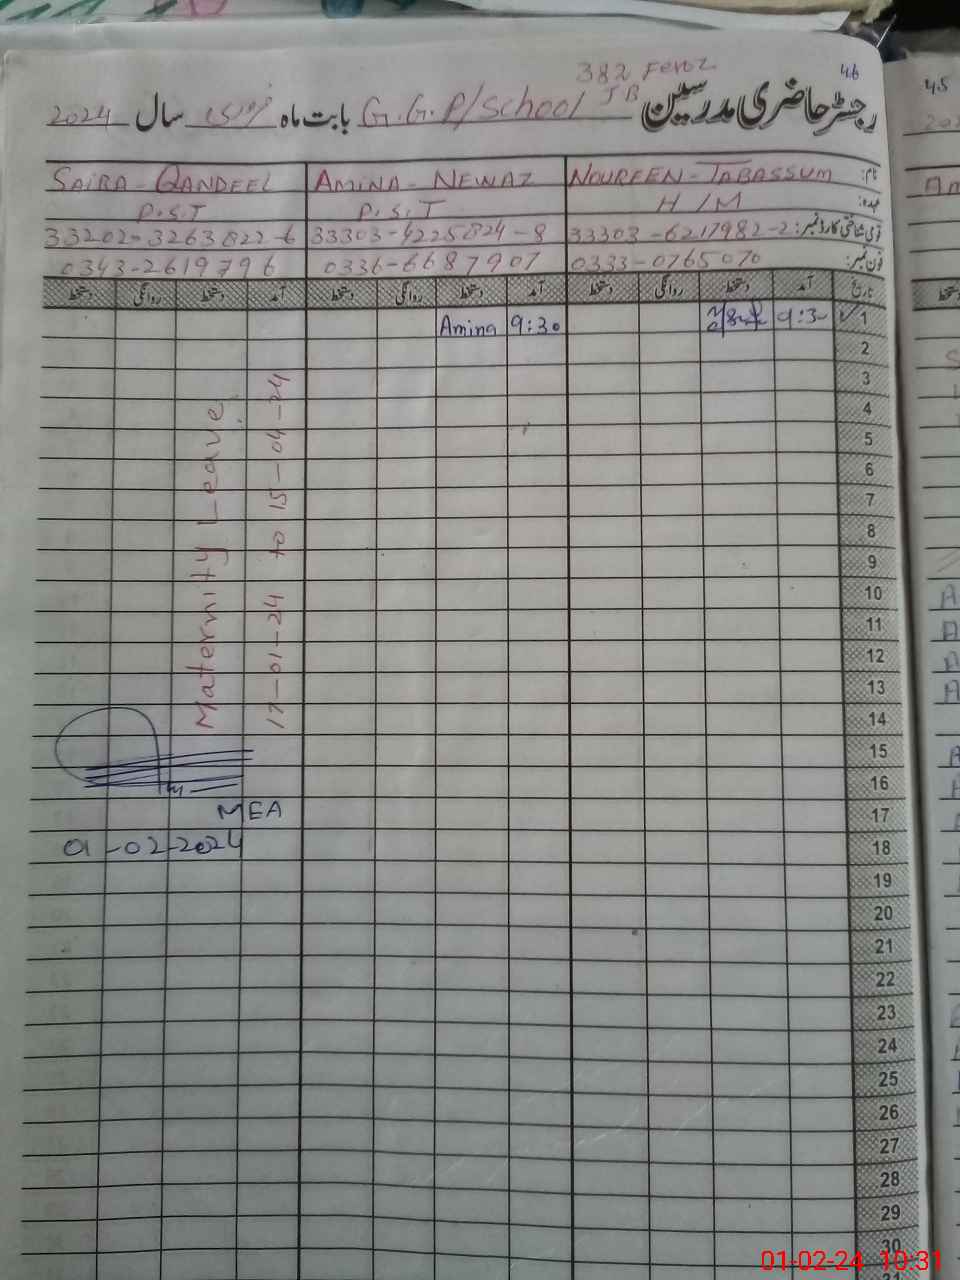 46
382 Feroz
رجسٹر حاضری مدرسین JB G.G.P/School بابت ماہ فروری سال 2024
نام: NOUREEN-TABASSUM AMINA-NEWAZ SAIRA-QANDEEL
عہدہ: H/M P.S.T P.S.T
قومی شناختی کارڈ نمبر: 33303-6217982-2 33303-4225824-8 33202-3263822-6
فون نمبر: 0333-0765070 0336-6687907 0343-2619796
تاریخ آمد دستخط روانگی دستخط آمد دستخط روانگی دستخط آمد دستخط روانگی دستخط
1 9:30 9:30 Amina
2
3
4
5
6
7
8
9
10
11
12
13
14
15
16
17
18
19
20
21
22
23
24
25
26
27
28
29
30
Maternity Leave
17-01-24 to 15-04-24
MEA
01-02-2024
45
01-02-24 10:31